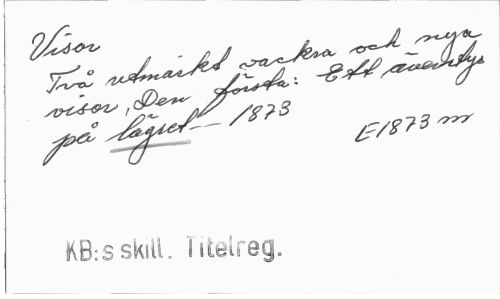 Visor
Två utmärkt vackra och nya
visor, Den första: Ett äventyr
på lägret — 1873
E1873 m
KB:s skill. Titelreg.